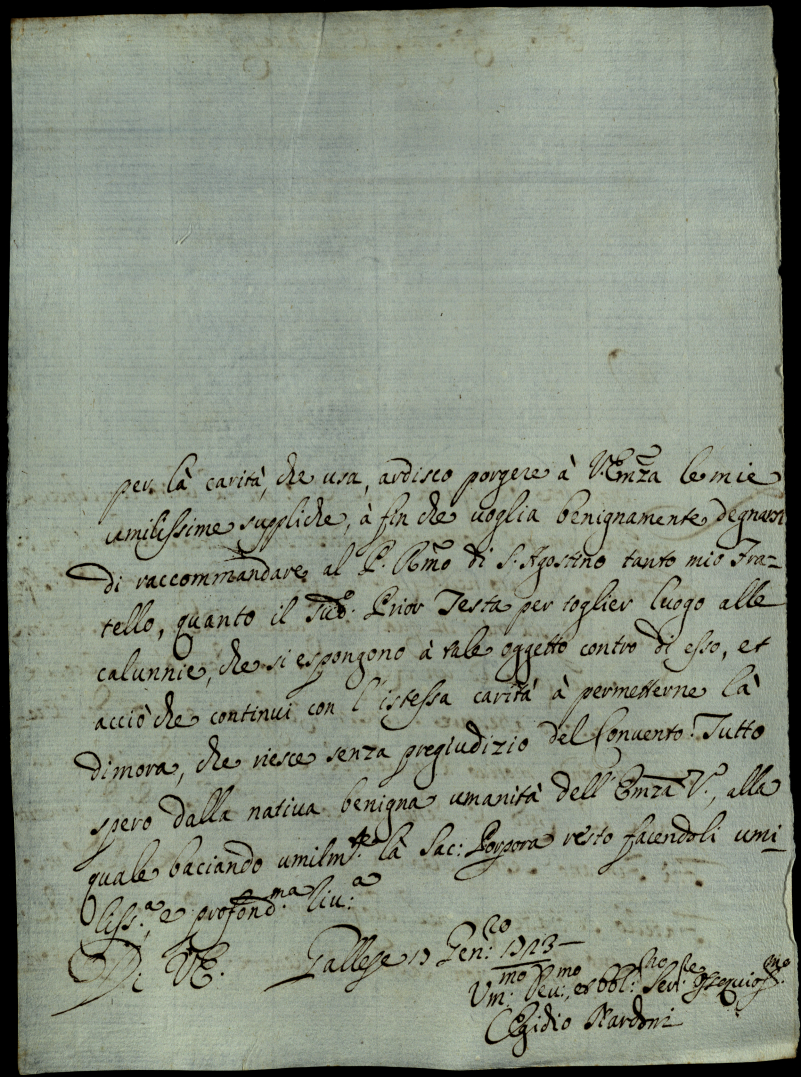 per là carità, che usa, ardisco porgere à V. Emza le mie
umilissime suppliche, à fin che voglia benignamente degnarsi
di raccommandare al P. Rmo di S. Agostino tanto mio Fra-
tello, quanto il sudo: Prior Testa per toglier luogo alle
calunnie, che si espongono à tale oggetto contro di esso, et
acciò che continui con l'istessa carità à permetterne là
dimora, che riesce senza pregiudizio del Convento. Tutto
spero dalla nativa benigna umanità dell'Emza V., alla
quale baciando umilmte: là Sac: Porpora resto facendoli umi-
liss:a, e profond:ma riv:a
Di VE. Gallese 19 Gen:ro
Um:mo Dev:mo, et obbl: Ser:re ossequios:mo
Egidio Nardoni